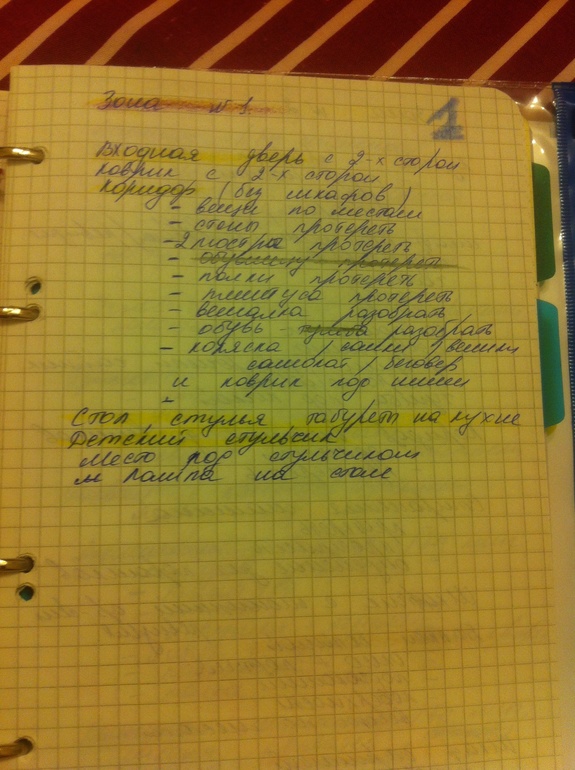 Зона № 1
1
Входная дверь с 2-х сторон
Коврик с 2-х сторон
Коридор (без шкафов)
- вещи по местам
- стены протереть
- 2 люстры протереть
- обувницу протереть
- полки протереть
- плинтуса протереть
- вешалка разобрать
- обувь - тумба разобрать
- коляска / санки / велики
самокат / беговел
и коврик под ними
-
Стол, стулья табурет на кухне
Детский стульчик
Место под стульчиком
и лампа на столе